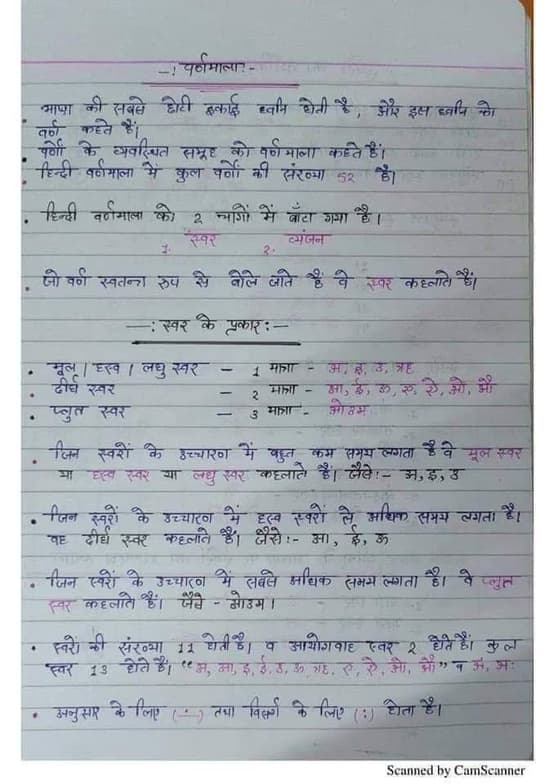 -: वर्णमाला:-
• भाषा की सबसे छोटी इकाई ध्वनि होती है, और इस ध्वनि को
वर्ण कहते हैं।
• वर्णों के व्यवस्थित समूह को वर्णमाला कहते हैं।
• हिन्दी वर्णमाला में कुल वर्णों की संख्या 52 है।
• हिन्दी वर्णमाला को 2 भागों में बाँटा गया है।
1. स्वर 2. व्यंजन
• जो वर्ण स्वतन्त्र रुप से बोले जाते हैं वे स्वर कहलाते हैं।
—: स्वर के प्रकार:—
• मूल / हस्व / लघु स्वर — 1 मात्रा - अ, इ, उ, ऋ
• दीर्घ स्वर — 2 मात्रा - आ, ई, ऊ, ए, ऐ, ओ, औ
• प्लुत स्वर — 3 मात्रा - ओउम
• जिन स्वरों के उच्चारण में बहुत कम समय लगता है वे मूल स्वर
या हस्व स्वर या लघु स्वर कहलाते हैं। जैसे:- अ, इ, उ
• जिन स्वरों के उच्चारण में हस्व स्वरों से अधिक समय लगता है।
वह दीर्घ स्वर कहलाते हैं। जैसे:- आ, ई, ऊ
• जिन स्वरों के उच्चारण में सबसे अधिक समय लगता है। वे प्लुत
स्वर कहलाते हैं। जैसे - ओउम।
• स्वरों की संख्या 11 होती है। व आयोगवाह स्वर 2 होते हैं। कुल
स्वर 13 होते हैं। "अ, आ, इ, ई, उ, ऊ, ऋ, ए, ऐ, ओ, औ" व अं, अः
• अनुसार के लिए (∸) तथा विसर्ग के लिए (:) होता है।
Scanned by CamScanner